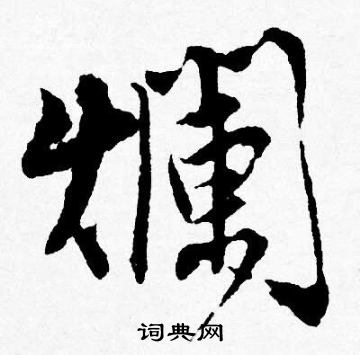 爛
词典网